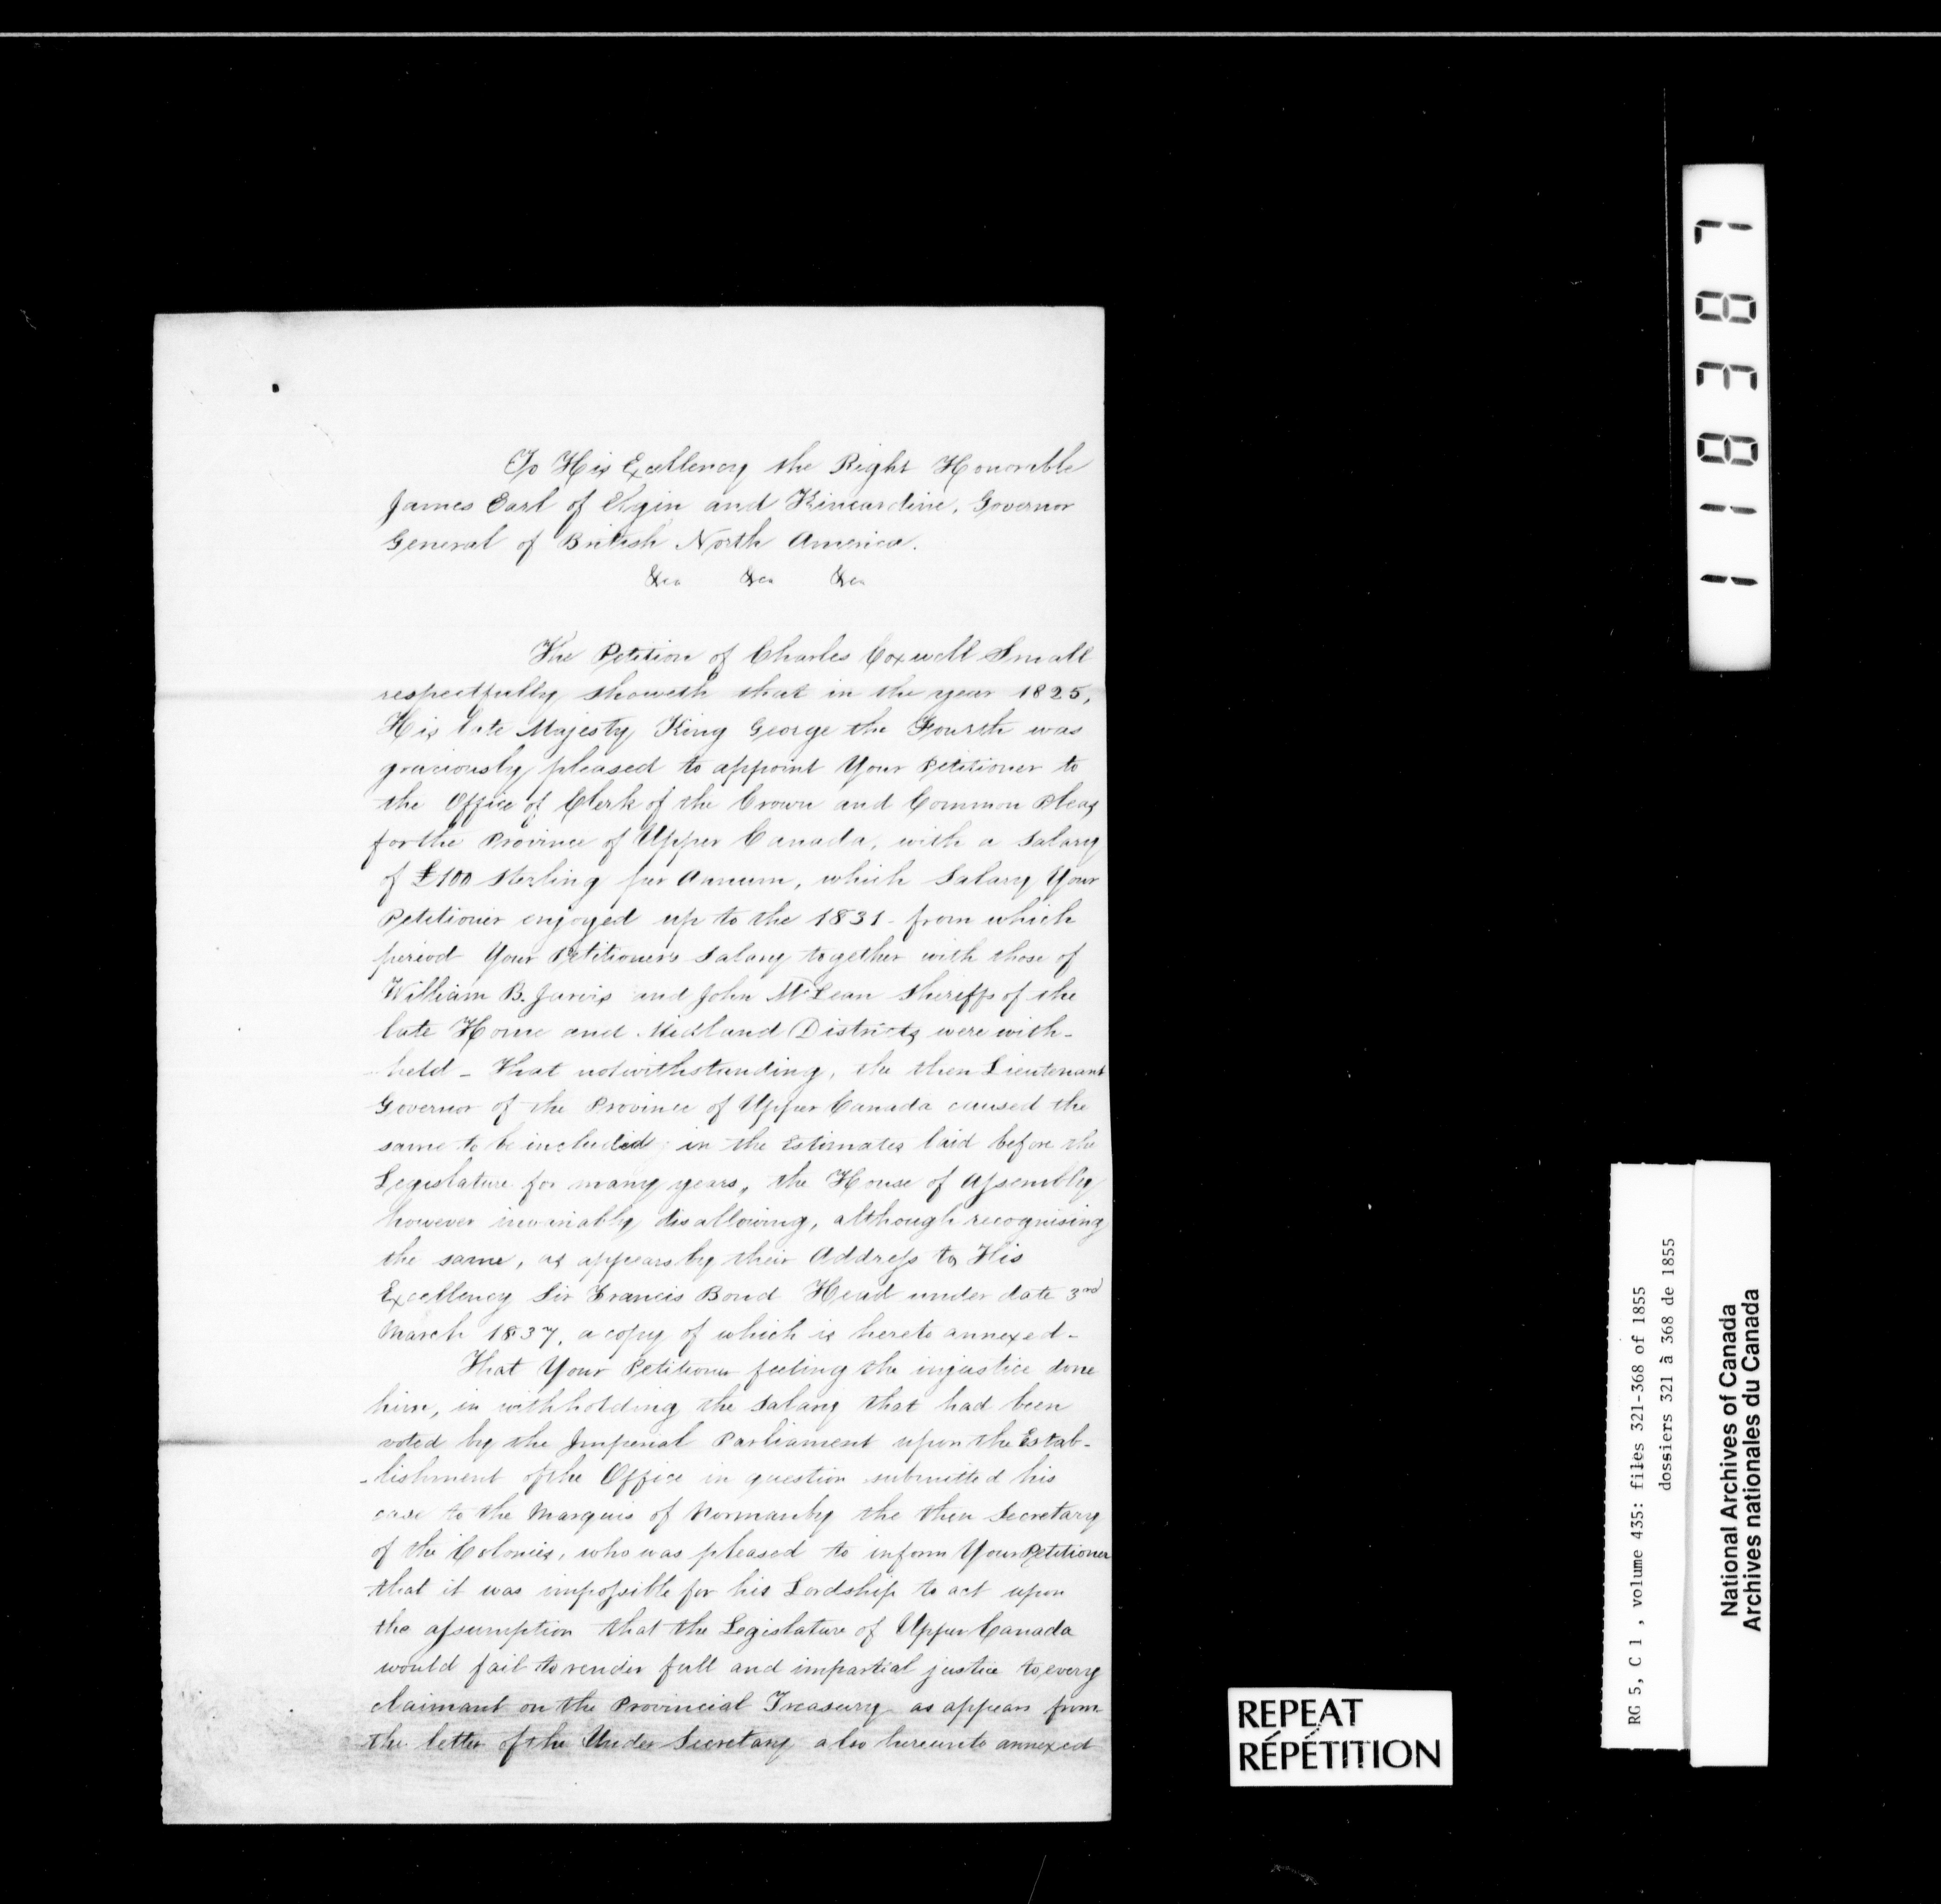 To His Excellency the Right Honorable
James Earl of Elgin and Kincardine, Governor
General of British North America.
&ca &ca &ca
The Petition of Charles Coxwell Small
respectfully showeth that in the year 1825,
His late Majesty King George the Fourth was
graciously pleased to appoint Your Petitioner to
the Office of Clerk of the Crown and Common Pleas
for the Province of Upper Canada, with a Salary
of £100 Sterling per Annum, which Salary Your
Petitioner enjoyed up to the 1831 - from which
period Your Petitioners Salary together with those of
William B. Jarvis and John McLean Sheriffs of the
late Home and Midland Districts were with-
held - That notwithstanding, the then Lieutenant
Governor of the Province of Upper Canada caused the
same to be included in the Estimates laid before the
Legislature for many years, the House of Assembly
however invariably disallowing, although recognising
the same, as appears by their Address to His
Excellency Sir Francis Bond Head under date 3rd
March 1837, a copy of which is hereto annexed -
That Your Petitioner feeling the injustice done
him, in withholding the Salary that had been
voted by the Imperial Parliament upon the Estab-
-lishment of the Office in question submitted his
case to the Marquis of Normanby the then Secretary
of the Colonies, who was pleased to inform Your Petitioner
that it was impossible for his Lordship to act upon
the assumption that the Legislature of Upper Canada
would fail to render full and impartial justice to every
claimant on the Provincial Treasury as appears from
the letter of the Under Secretary also hereunto annexed
118387
RG 5, C 1 , volume 435: files 321-368 of 1855
dossiers 321 à 368 de 1855
National Archives of Canada
Archives nationales du Canada
REPEAT
RÉPÉTITION